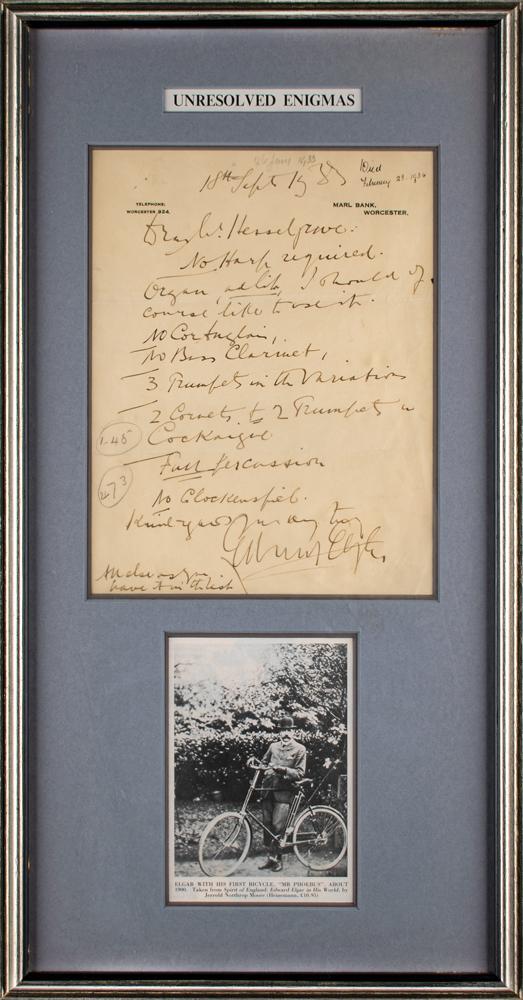 UNRESOLVED ENIGMAS
18th Sept 1933
Died
February 23. 1934
TELEPHONE:
WORCESTER 924.
MARL BANK,
WORCESTER.
Dear Mr Hesselgrave:
No Harp required.
Organ, ad lib, I should of
course like to use it.
No Cor Anglais,
No Bass Clarinet,
3 Trumpets in the Variations
2 Cornets & 2 Trumpets in
1.45
Cockaigne
Full Percussion
473
No Glockenspiel.
Kind regards
Yours very truly
Edward Elgar
All else as you
have it in the list
ELGAR WITH HIS FIRST BICYCLE, "MR PHOEBUS", ABOUT
1900. Taken from Spirit of England: Edward Elgar in His World, by
Jerrold Northrop Moore (Heinemann, £10.95)